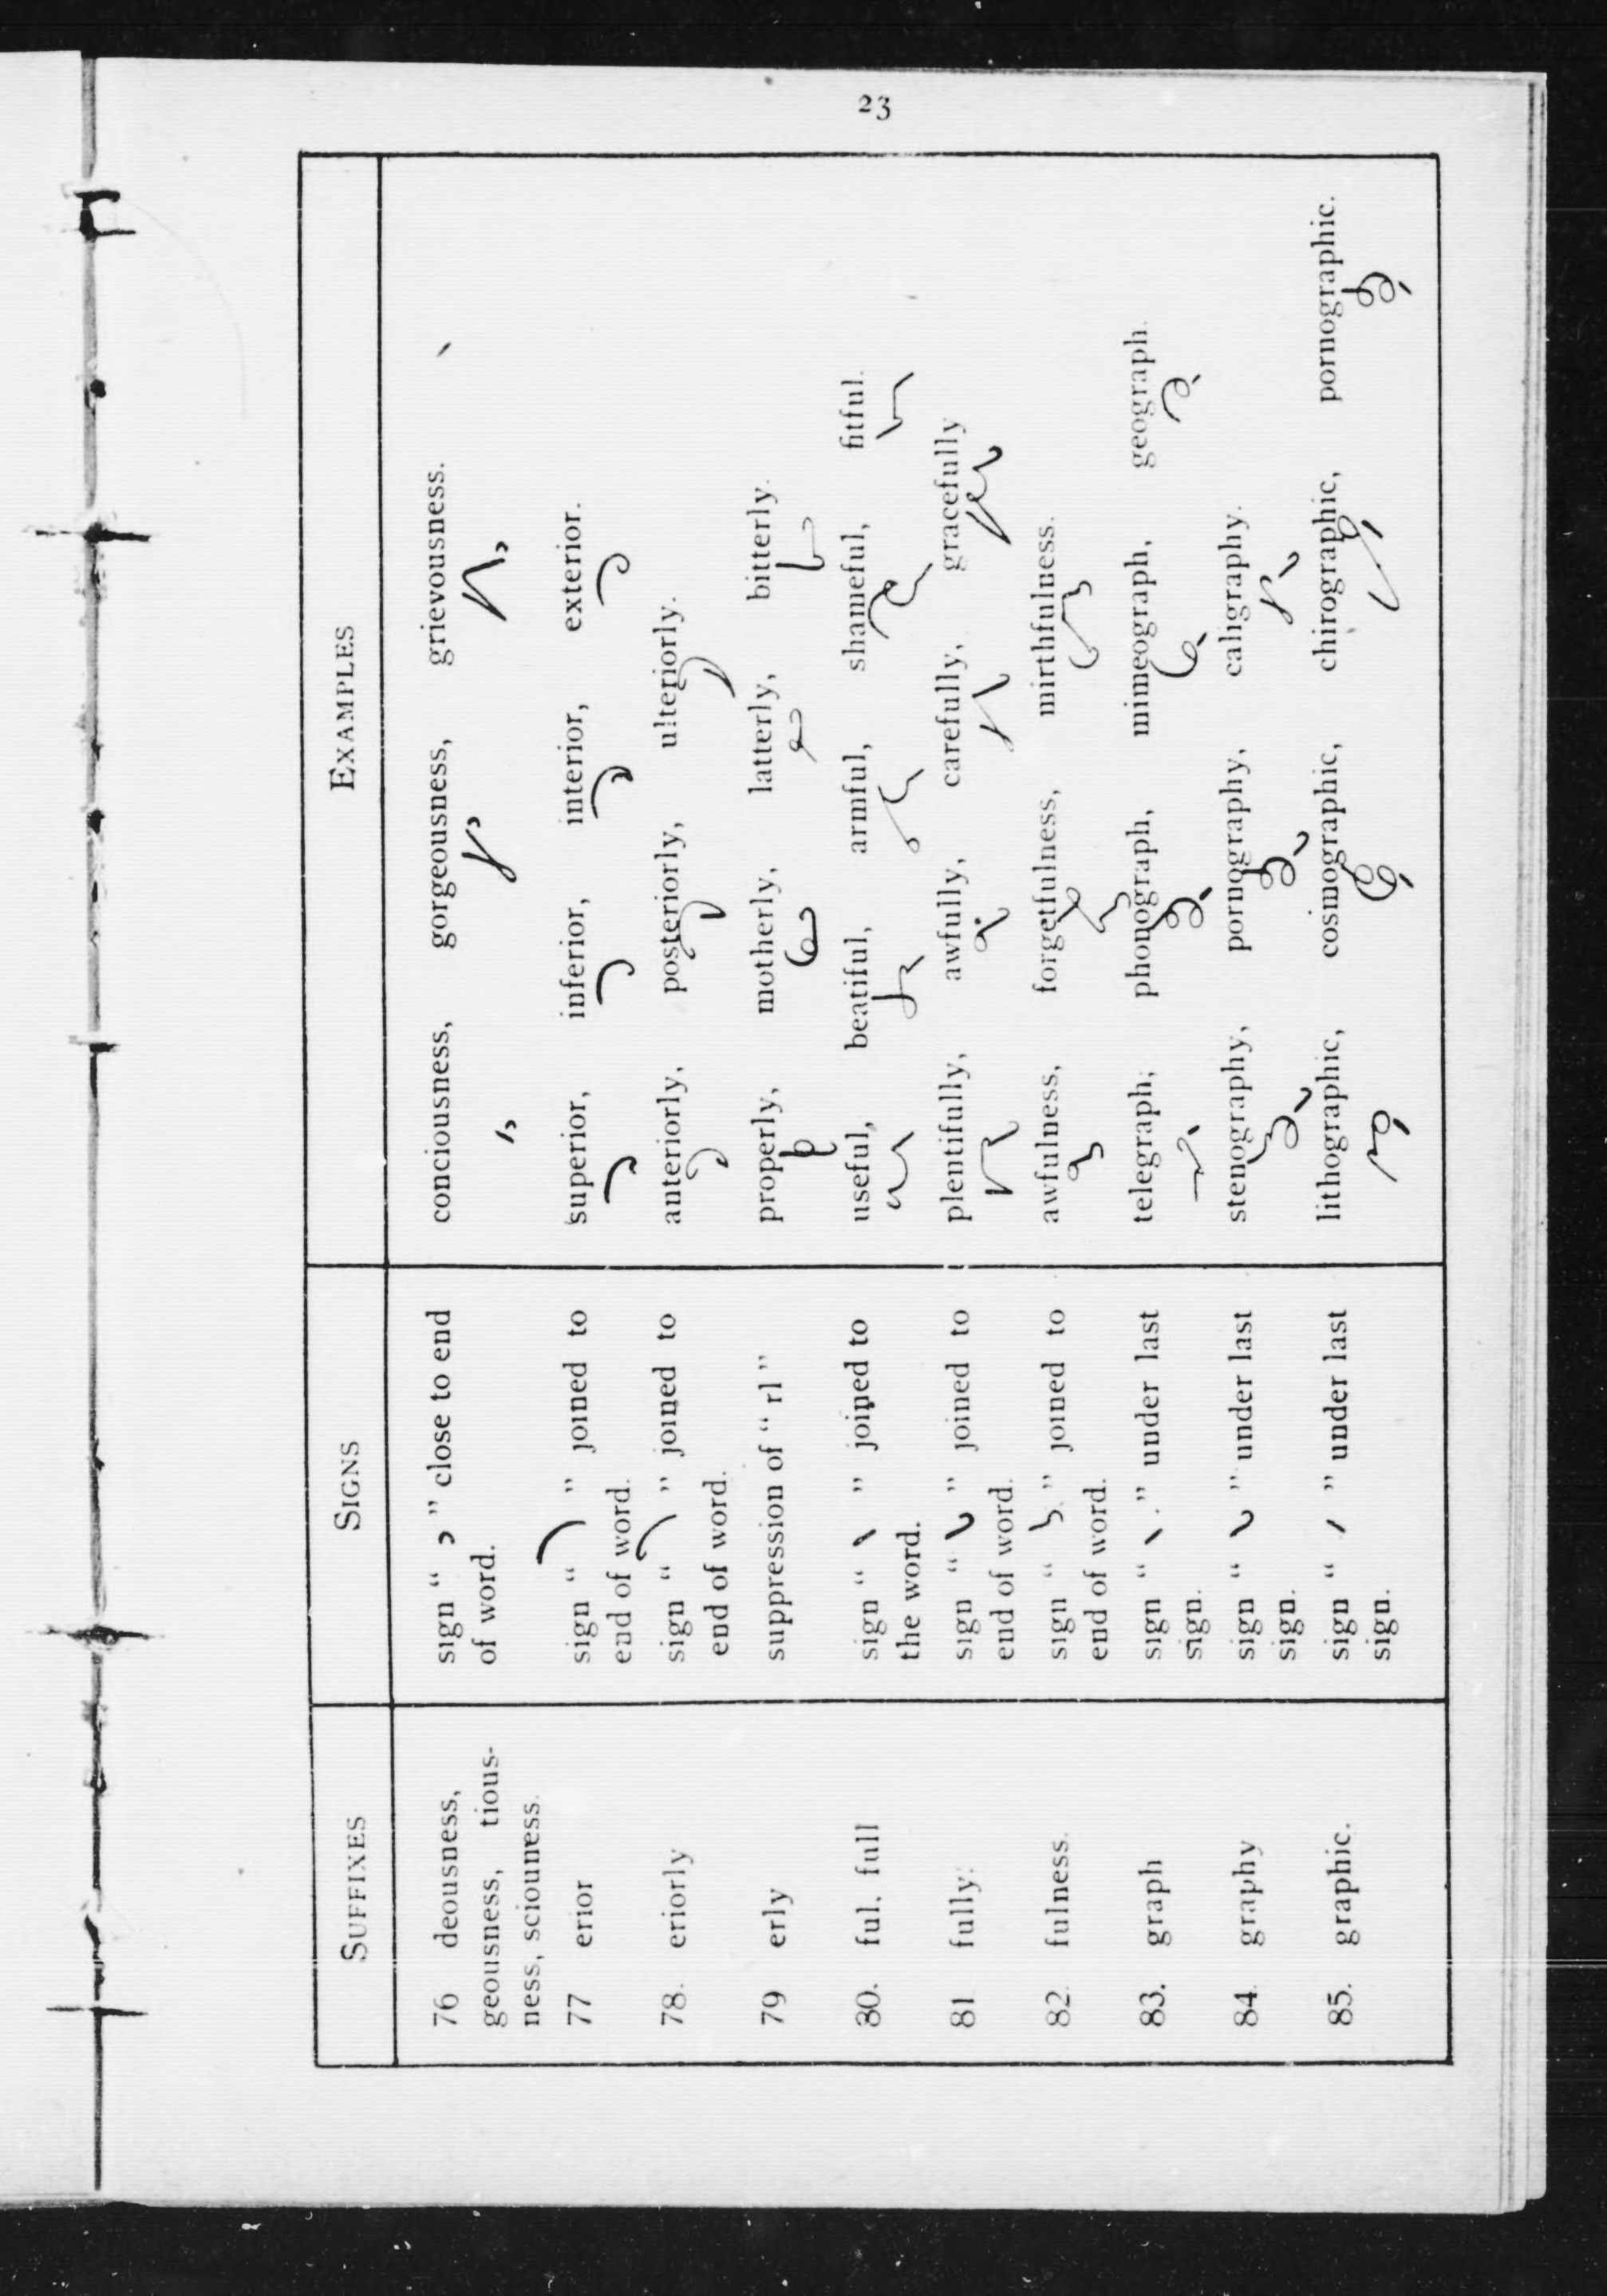 23
SUFFIXES SIGNS EXAMPLES
76 deousness, sign “ ” close to end conciousness, gorgeousness, grievousness.
geousness, tious- of word.
ness, sciouness.
77 erior sign “ ” joined to superior, inferior, interior, exterior.
end of word.
78. eriorly sign “ ” joined to anteriorly, posteriorly, ulteriorly.
end of word.
79 erly suppression of “ rl ” properly, motherly, latterly, bitterly.
80. ful. full sign “ ” joined to useful, beatiful, armful, shameful, fitful.
the word.
81 fully. sign “ ” joined to plentifully, awfully, carefully, gracefully
end of word.
82. fulness. sign “ ” joined to awfulness, forgetfulness, mirthfulness.
end of word.
83. graph sign “ ” under last telegraph; phonograph, mimeograph, geograph.
sign.
84. graphy sign “ ” under last stenography, pornography, caligraphy.
sign.
85. graphic. sign “ ” under last lithographic, cosmographic, chirographic, pornographic.
sign.